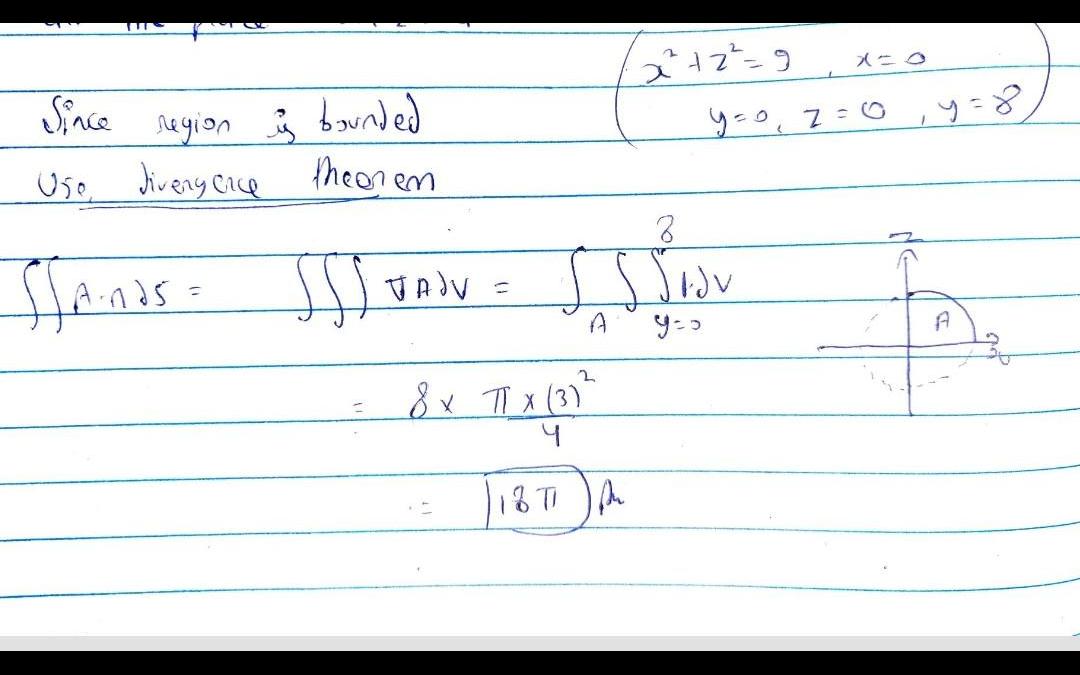 the
x² + z² = 9 , x = 0
y = 0, z = 0 , y = 8
Since region is bounded
Use, divergence theorem
∬ A·n ds = ∭ ∇A dV = ∫ ∫_A ∫_{y=0}^{8} 1·dV
z
A
= 8 × π × (3)² / 4
= 18π